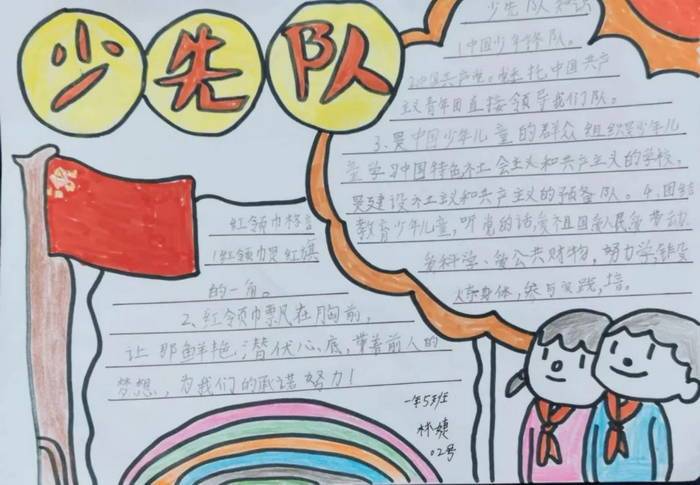 少先队
少先队知识
1.中国少年先锋队。
2.中国共产党。委托中国共产
主义青年团直接领导我们队。
3、是中国少年儿童的群众组织是少年儿
童学习中国特色社会主义和共产主义的学校,
是建设社主义和共产主义的预备队。4、团结
教育少年儿童,听党的话,爱祖国爱人民爱劳动、
爱科学、爱公共财物,努力学,锻
炼身体,参与实践,培。
红领巾格言
1.红领巾是红旗
的一角。
2、红领巾飘在胸前,
让那鲜艳潜伏心底,带着前人的
梦想,为我们的承诺努力!
一年5班
林婕
02号